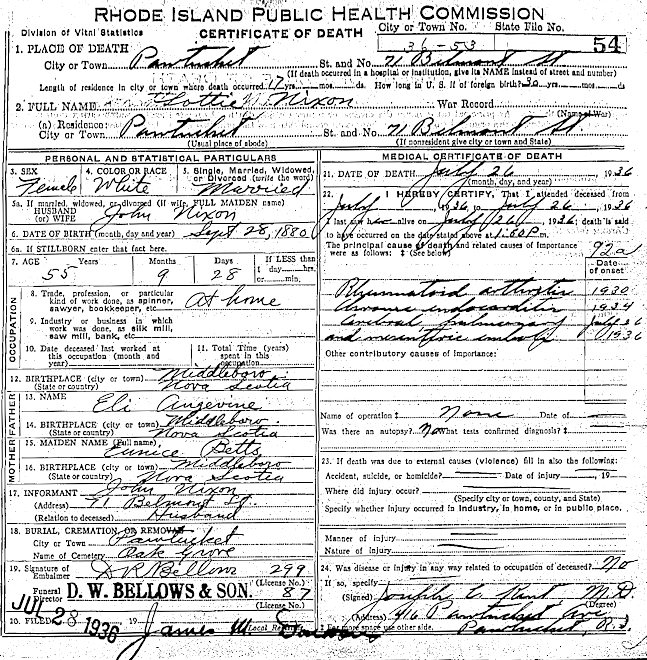 RHODE ISLAND PUBLIC HEALTH COMMISSION
Division of Vital Statistics
CERTIFICATE OF DEATH
City or Town No.
State File No.
36-53
54
1. PLACE OF DEATH
City or Town Pawtucket St. and No 71 Belmont St
(If death occurred in a hospital or institution, give its NAME instead of street and number)
Length of residence in city or town where death occurred 17 yrs. mos. ds. How long in U. S. if of foreign birth? 30 yrs. mos. ds
2. FULL NAME Lottie Nixon War Record
(Name of War)
(a) Residence:
City or Town Pawtucket St. and No 71 Belmont St.
(Usual place of abode) (If nonresident give city or town and State)
PERSONAL AND STATISTICAL PARTICULARS
3. SEX Female
4. COLOR OR RACE White
5. Single, Married, Widowed, or Divorced (write the word) Married
5a. If married, widowed, or divorced (if wife, FULL MAIDEN name)
HUSBAND (or) WIFE John Nixon
6. DATE OF BIRTH (month, day, and year) Sept 28, 1880
6a. If STILLBORN enter that fact here.
7. AGE Years Months Days If LESS than
55 9 28 1 day hrs. or min.
OCCUPATION
8. Trade, profession, or particular kind of work done, as spinner, sawyer, bookkeeper, etc. At home
9. Industry or business in which work was done, as silk mill, saw mill, bank, etc
10. Date deceased last worked at this occupation (month and year)
11. Total Time (years) spent in this occupation
12. BIRTHPLACE (city or town) Middleboro
(State or country) Nova Scotia
FATHER
13. NAME Eli Angevine
14. BIRTHPLACE (city or town) Middleboro
(State or country) Nova Scotia
MOTHER
15. MAIDEN NAME (Full name) Eunice Betts
16. BIRTHPLACE (city or town) Middleboro
(State or country) Nova Scotia
17. INFORMANT John Nixon
(Address) 71 Belmont St.
(Relation to deceased) Husband
18. BURIAL, CREMATION, OR REMOVAL
City or Town Pawtucket
Name of Cemetery Oak Grove
19. Signature of Embalmer D R Bellows 299
(License No.)
Funeral Director D. W. BELLOWS & SON. 87
(License No.)
20. FILED JUL 28 1936 19
James M
Local
MEDICAL CERTIFICATE OF DEATH
21. DATE OF DEATH July 26, 1936
(month, day, and year)
22. I HEREBY CERTIFY, That I attended deceased from
July 1936, to July 26, 1936
I last saw her alive on July 26, 1936, death is said
to have occurred on the date stated above at 1:50 P.m.
The principal cause of death and related causes of importance were as follows: ‡ (See below)
92a
Date of onset
Rheumatoid arthritis 1930
endocarditis 1934
cerebral pulmonary July 26
and mesenteric emboly 1936
Other contributory causes of importance:
Name of operation ‡ None Date of
Was there an autopsy? No What tests confirmed diagnosis? ‡
23. If death was due to external causes (violence) fill in also the following:
Accident, suicide, or homicide? Date of injury , 19
Where did injury occur?
(Specify city or town, county, and State)
Specify whether injury occurred in industry, in home, or in public place.
Manner of injury
Nature of injury
24. Was disease or injury in any way related to occupation of deceased? No
If so, specify
(Signed) Joseph C. Kent, M.D.
(Degree)
(Address) 416 Pawtucket Ave
Pawtucket, R.I.
‡ For more space use other side.